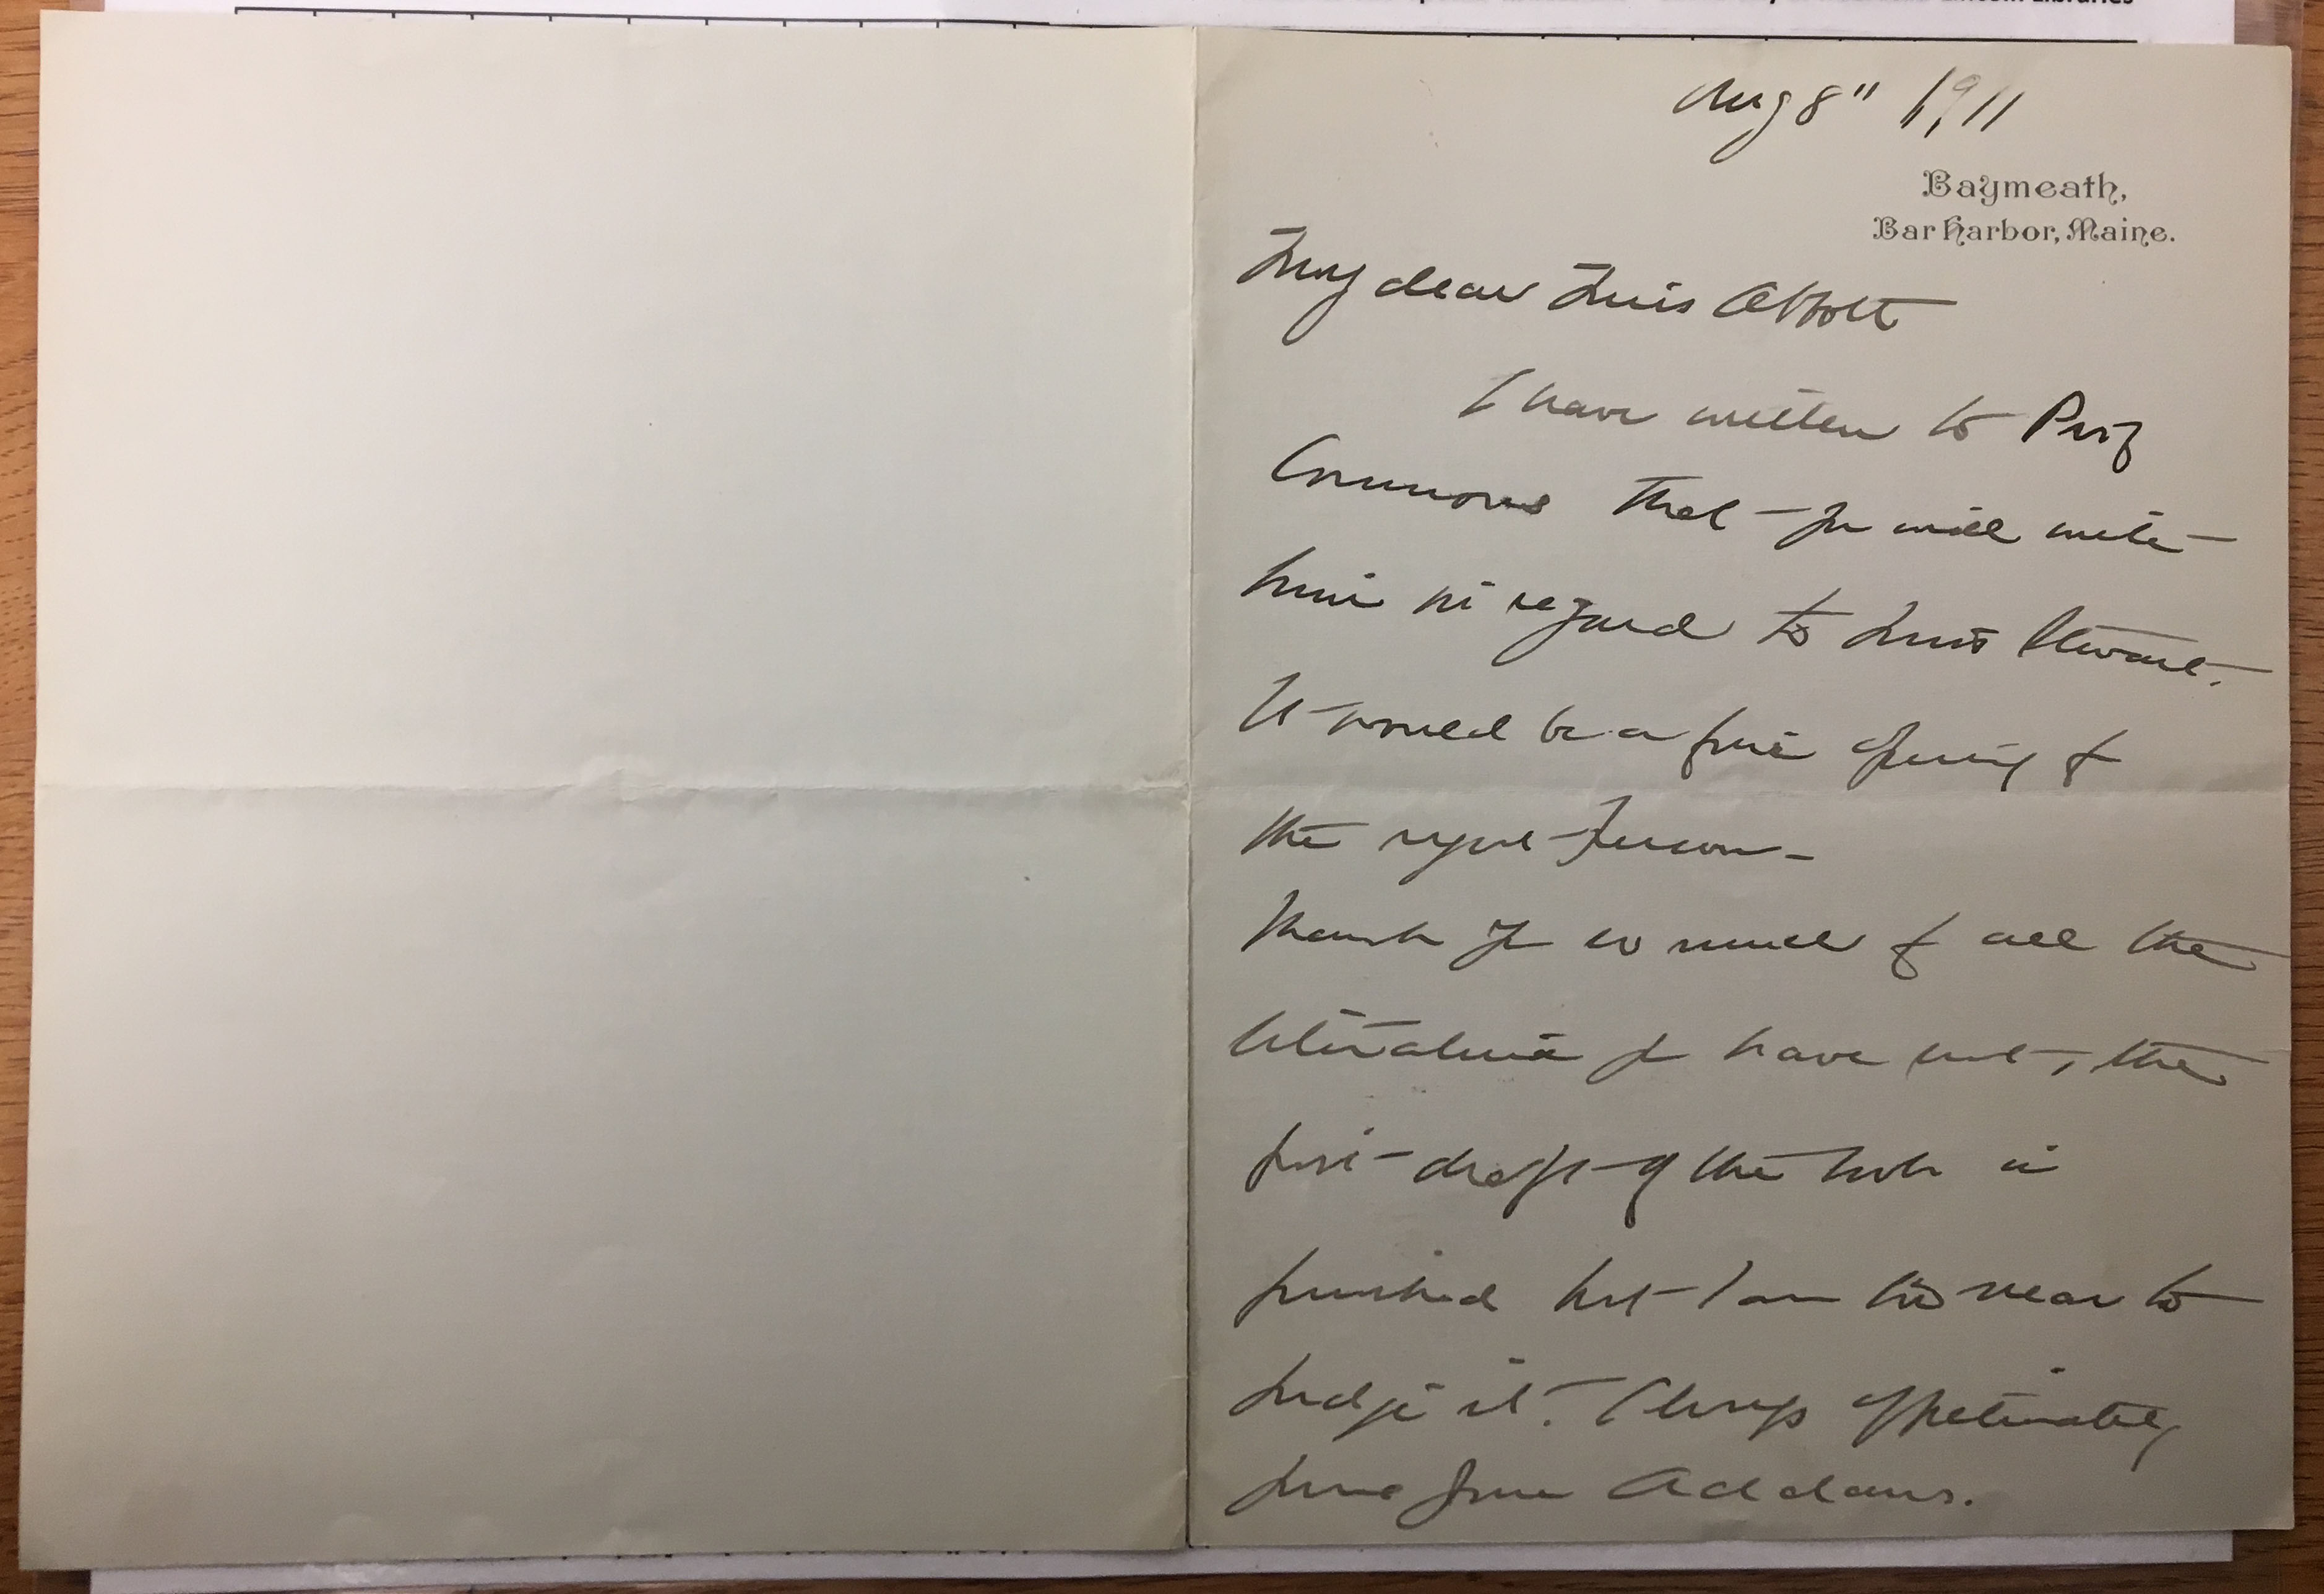 Aug 8" 1911
Baymeath,
Bar Harbor, Maine.
My dear Miss Abbott
I have written to Prof
Commons that you will write
him in regard to Miss
It would be a fine opening for
the right person -
Thank you so much for all the
literature you have sent, the
first draft of the book is
finished but I am too near to
judge it. Always affectionately
yours Jane Addams.
Libraries